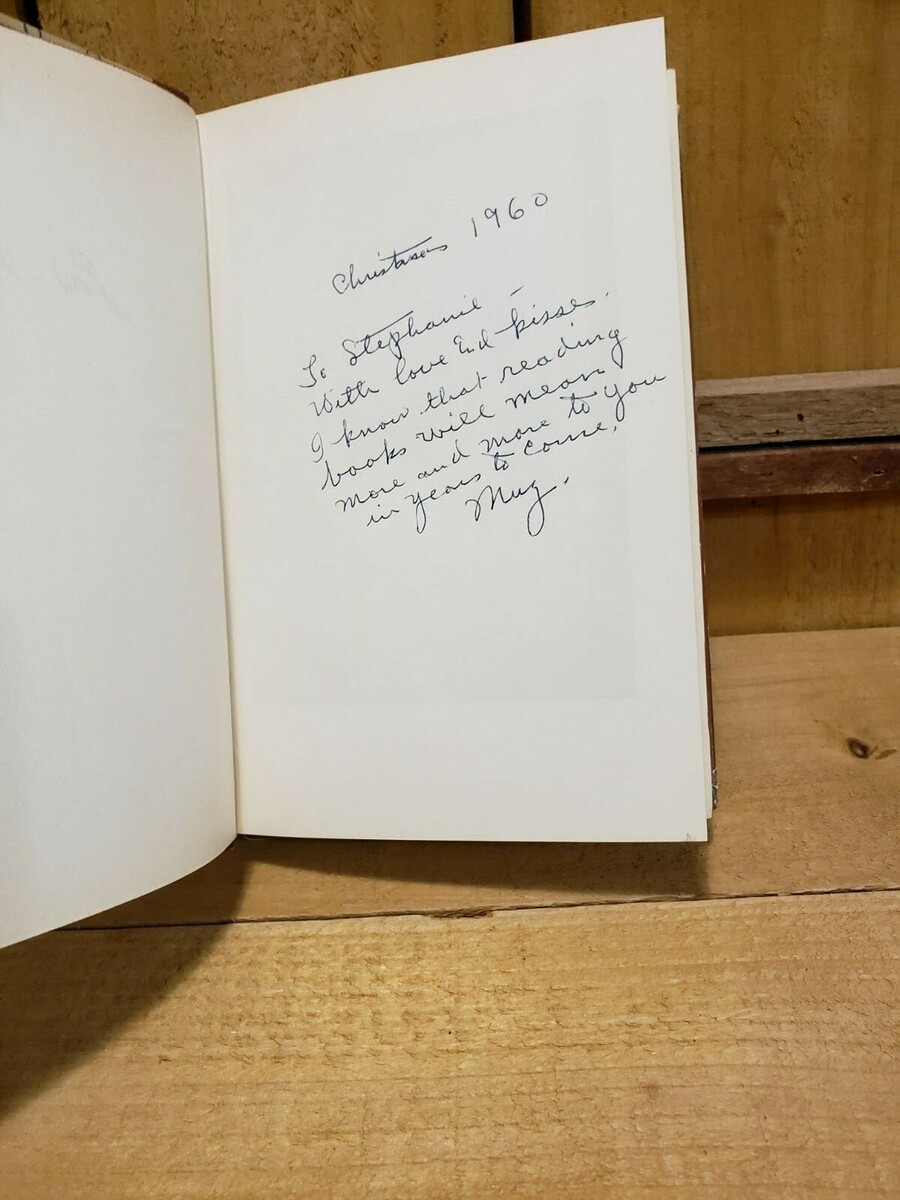 Christmas 1960
To Stephanie –
With love and kisses.
I know that reading
books will mean
more and more to you
in years to come.
Muz.